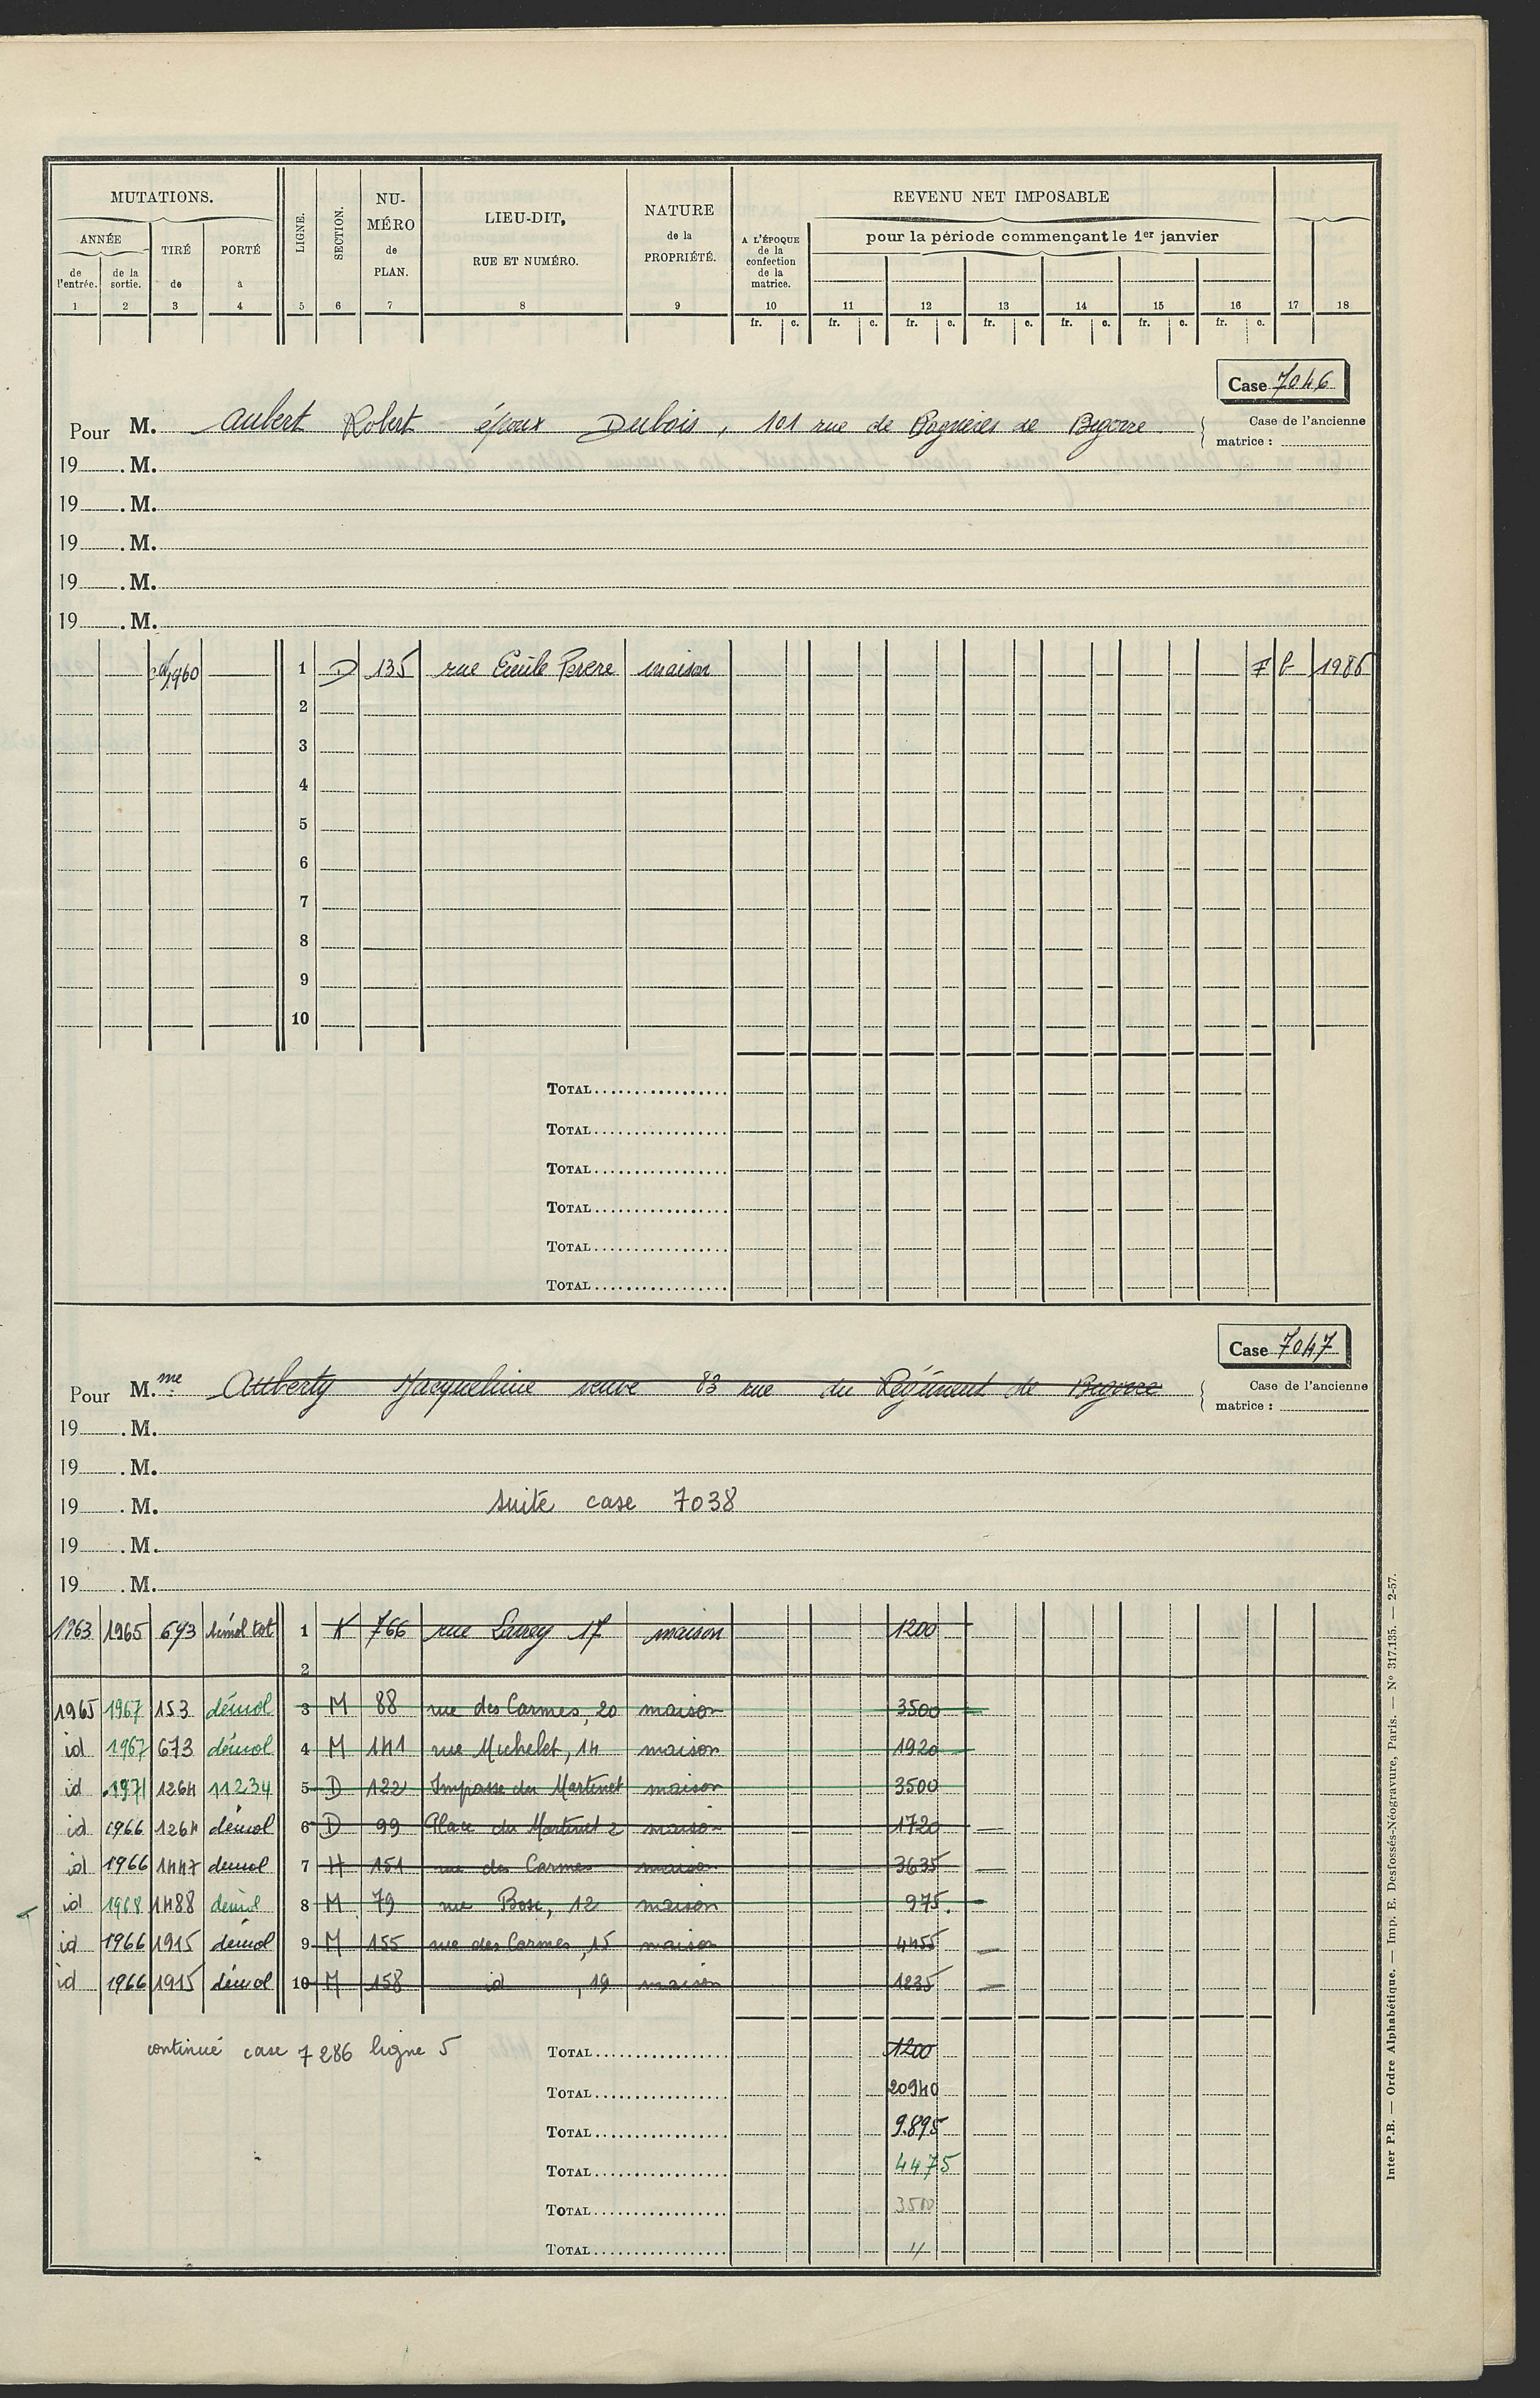 MUTATIONS.
ANNÉE
de l'entrée.
de la sortie.
TIRÉ
de
PORTÉ
à
LIGNE.
SECTION.
NU-
MÉRO
de
PLAN.
LIEU-DIT,
RUE ET NUMÉRO.
NATURE
de la
PROPRIÉTÉ.
A L'ÉPOQUE
de la
confection
de la
matrice.
REVENU NET IMPOSABLE
pour la période commençant le 1er janvier
1 2 3 4 5 6 7 8 9 10 11 12 13 14 15 16 17 18
fr. c. fr. c. fr. c. fr. c. fr. c. fr. c. fr. c.
Case 7046
Pour M. Aubert Robert époux Dubois, 101 rue de Bagnères de Bigorre
Case de l'ancienne
matrice :
19 . M.
19 . M.
19 . M.
19 . M.
19 . M.
1960 1 D 135 rue Emile Perere maison F 1986
2
3
4
5
6
7
8
9
10
TOTAL
TOTAL
TOTAL
TOTAL
TOTAL
TOTAL
Case 7047
Pour M.me Auberty Jacqueline veuve 83 rue du Régiment de Bigorre
Case de l'ancienne
matrice :
19 . M.
19 . M.
19 . M. suite case 7038
19 . M.
19 . M.
1963 1965 693 démol tot 1 K 766 rue Larrey 17 maison 1200
2
1965 1967 153 démol 3 M 88 rue des Carmes, 20 maison 3500
id 1967 673 démol 4 M 141 rue Michelet, 14 maison 1920
id 1971 1264 11234 5 D 122 Impasse du Martinet maison 3500
id 1966 1264 démol 6 D 99 Place du Martinet 2 maison 1720
id 1966 1447 démol 7 H 151 rue des Carmes maison 3635
id 1968 1488 démol 8 M 79 rue Bosc, 12 maison 975.
id 1966 1915 démol 9 M 155 rue des Carmes, 15 maison 4455
id 1966 1915 démol 10 M 158 id , 19 maison 1235
continué case 7286 ligne 5 TOTAL 1200
TOTAL 20940
TOTAL 9.895
TOTAL 4475
TOTAL 3500
TOTAL
Inter P.B. — Ordre Alphabétique. — Imp. E. Desfossés-Néogravure, Paris. — N° 317.135. — 2-57.